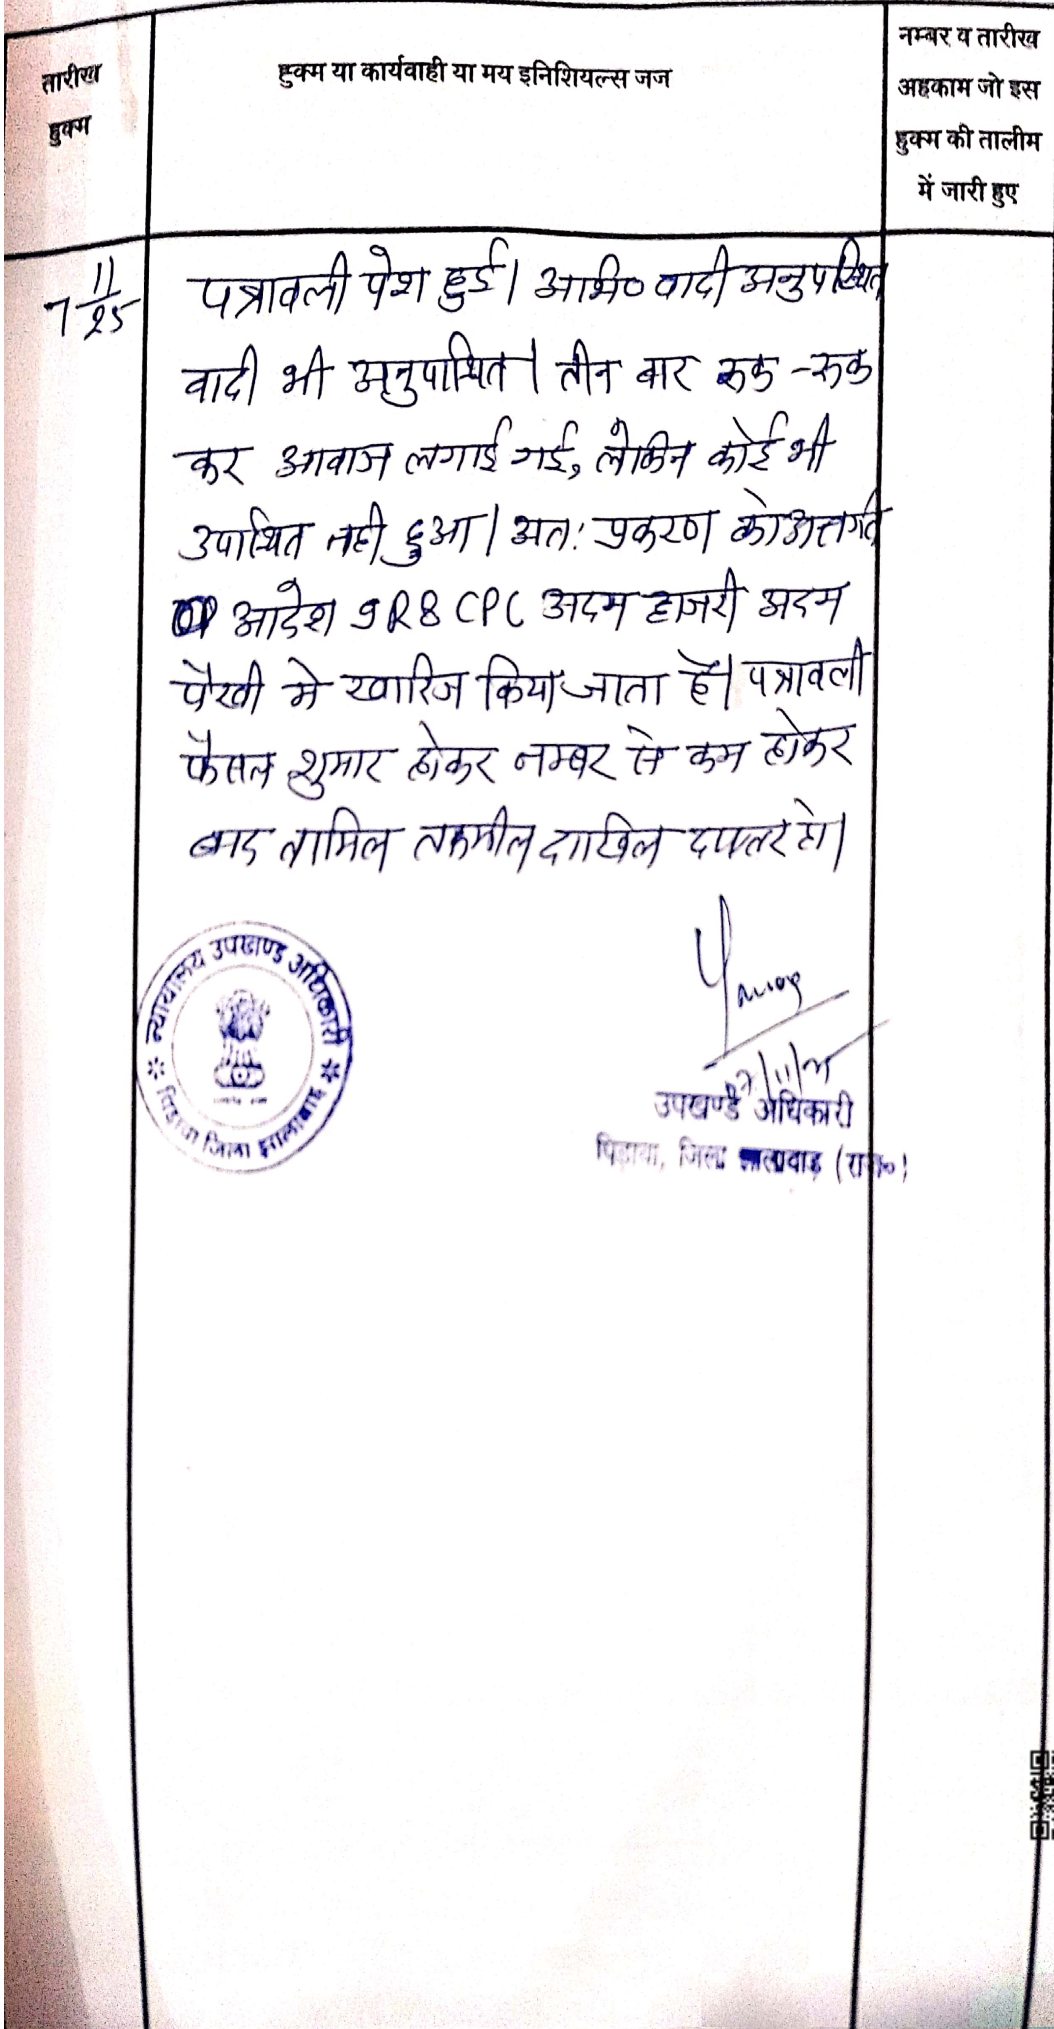 तारीख
हुक्म
हुक्म या कार्यवाही या मय इनिशियल्स जज
नम्बर व तारीख
अहकाम जो इस
हुक्म की तालीम
में जारी हुए
7 11/25
पत्रावली पेश हुई। अभि० वादी अनुपस्थित
वादी भी अनुपस्थित। तीन बार रुक-रुक
कर आवाज लगाई गई, लेकिन कोई भी
उपस्थित नही हुआ। अतः प्रकरण को अन्तर्गत
आदेश 9R8 CPC अदम हाजरी अदम
पैरवी मे खारिज किया जाता है। पत्रावली
फैसल शुमार होकर नम्बर से कम होकर
बाद तामिल तकमील दाखिल दफ्तर हो।
न्यायालय उपखण्ड अधिकारी
पिड़ावा जिला झालावाड़
7/11/25
उपखण्ड अधिकारी
पिड़ावा, जिला झालावाड़ (राज०)